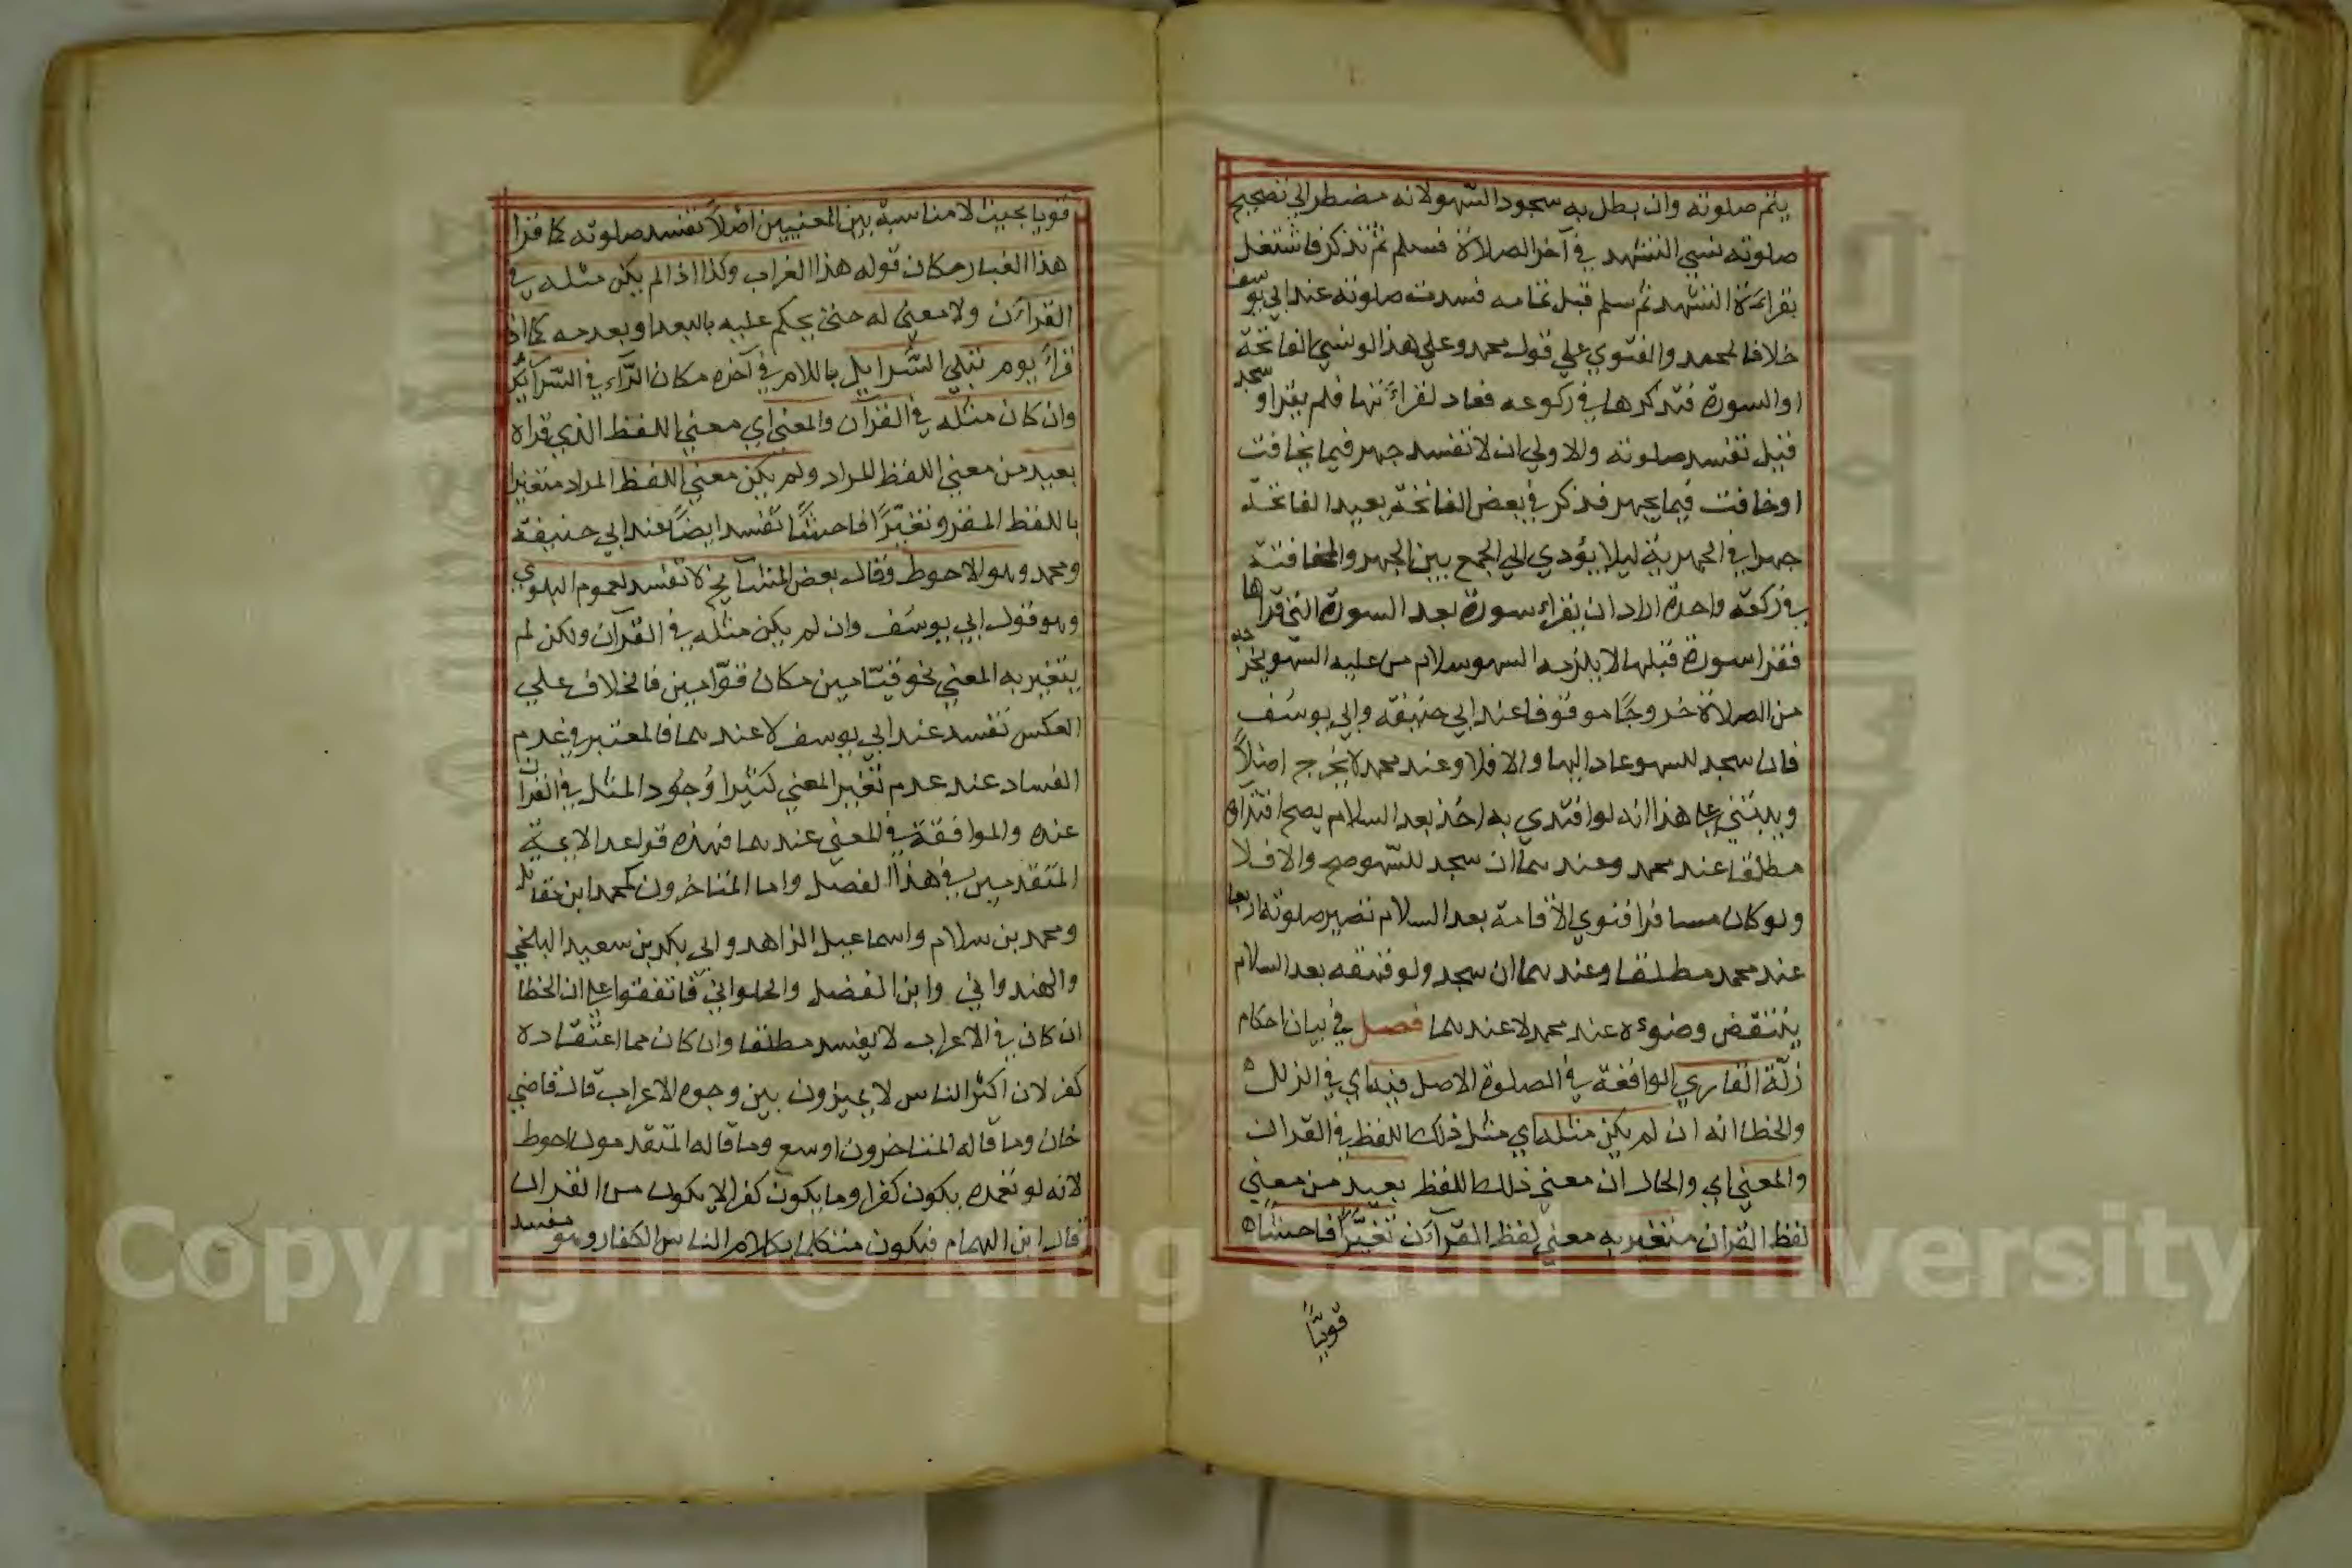 يتم صلوته وان بطل به سجود السّهو لانه مضطر الي تصحيح
صلوته نسي التشهد في آخر الصلاة فسلم ثم تذكر فاشتغل
بقراءة التشهد ثم سلم قبل تمامه فسدت صلوته عند ابي يوسف
خلافا لمحمد والفتوي علي قول محمد وعلي هذا لو نسي الفاتحة
او السورة فتذكرها في ركوعه فعاد لقراءتها فلم يقرا وسجد
قيل تفسد صلوته والاولي ان لا تفسد جهر فيما يخافت
او خافت فيما يجهر فذكر في بعض الفاتحة يعيد الفاتحة
جهرا في الجهرية ليلا يؤدي الي الجمع بين الجهر والمخافتة
في ركعة واحدة اراد ان يقراء سورة بعد السورة التي قراها
فقرا سورة قبلها لا يلزمه السهو سلام من عليه السهو يخرجه
من الصلاة خروجًا موقوفا عند ابي حنيفة وابي يوسف
فان سجد للسهو عاد اليها والا فلا وعند محمد لا يخرج اصلاً
ويبتني علي هذا انه لو اقتدي به احد بعد السلام يصح اقتداؤه
مطلقا عند محمد وعندهما ان سجد للسّهو صح والا فلا
ولو كان مسافرا فنوي الاقامة بعد السلام تصير صلوته اربعا
عند محمد مطلقا وعندهما ان سجد ولو قهقه بعد السلام
ينتقض وضوءه عند محمد لا عندهما فصل في بيان احكام
زلّة القاري الواقعة في الصلوة الاصل فيها اي في الزلل
والخطا انه ان لم يكن مثله اي مثل ذلك اللفظ في القران
والمعني اي والحال ان معني ذلك اللفظ بعيد من معني
لفظ القران متغير به معني لفظ القرآن تغيّرًا فاحشا
قويًّا
قويا بحيث لا مناسبة بين المعنيين اصلاً تفسد صلوته كما قرا
هذا الغبار مكان قوله هذا الغراب وكذا اذا لم يكن مثله في
القران ولا معني له حتي يحكم عليه بالبعد او بعدمه كما اذا
قراء يوم تبلي السّرايل باللام في آخره مكان الرّاء في السّرآئر
وان كان مثله في القرآن والمعني اي معني اللفظ الذي قراه
بعيد من معني اللفظ المراد ولم يكن معني اللفظ المراد متغيرا
باللفظ المقرو تغيّرًا فاحشًا تفسد ايضًا عند ابي حنيفة
ومحمد وهو الاحوط وقال بعض المشايخ لا تفسد لعموم البلوي
وهو قول ابي يوسف وان لم يكن مثله في القرآن ولكن لم
يتغير به المعني نحو قيّامين مكان قوّامين فالخلاف علي
العكس تفسد عند ابي يوسف لا عندهما فالمعتبر في عدم
الفساد عند عدم تغير المعني كثيرا وُجُود المثل في القران
عنده والموافقة في المعني عندهما فهذه قواعد الايمة
المتقدمين في هذا الفصل واما المتاخرون كمحمد ابن مقاتل
ومحمد بن سلام واسماعيل الزاهد وابي بكر بن سعيد البلخي
والهندواني وابن الفضل والحلواني فاتفقوا علي ان الخطا
ان كان في الاعراب لا يفسد مطلقا وان كان مما اعتقاده
كفر لان اكثر الناس لا يميزون بين وجوه الاعراب قال قاضي
خان وما قاله المتاخرون اوسع وما قاله المتقدمون احوط
لانه لو تعمده يكون كفرا وما يكون كفرا لا يكون من القران
قال ابن الهمام فيكون متكلما بكلام الناس الكفار وهو مفسد
Copyright © King Saud University